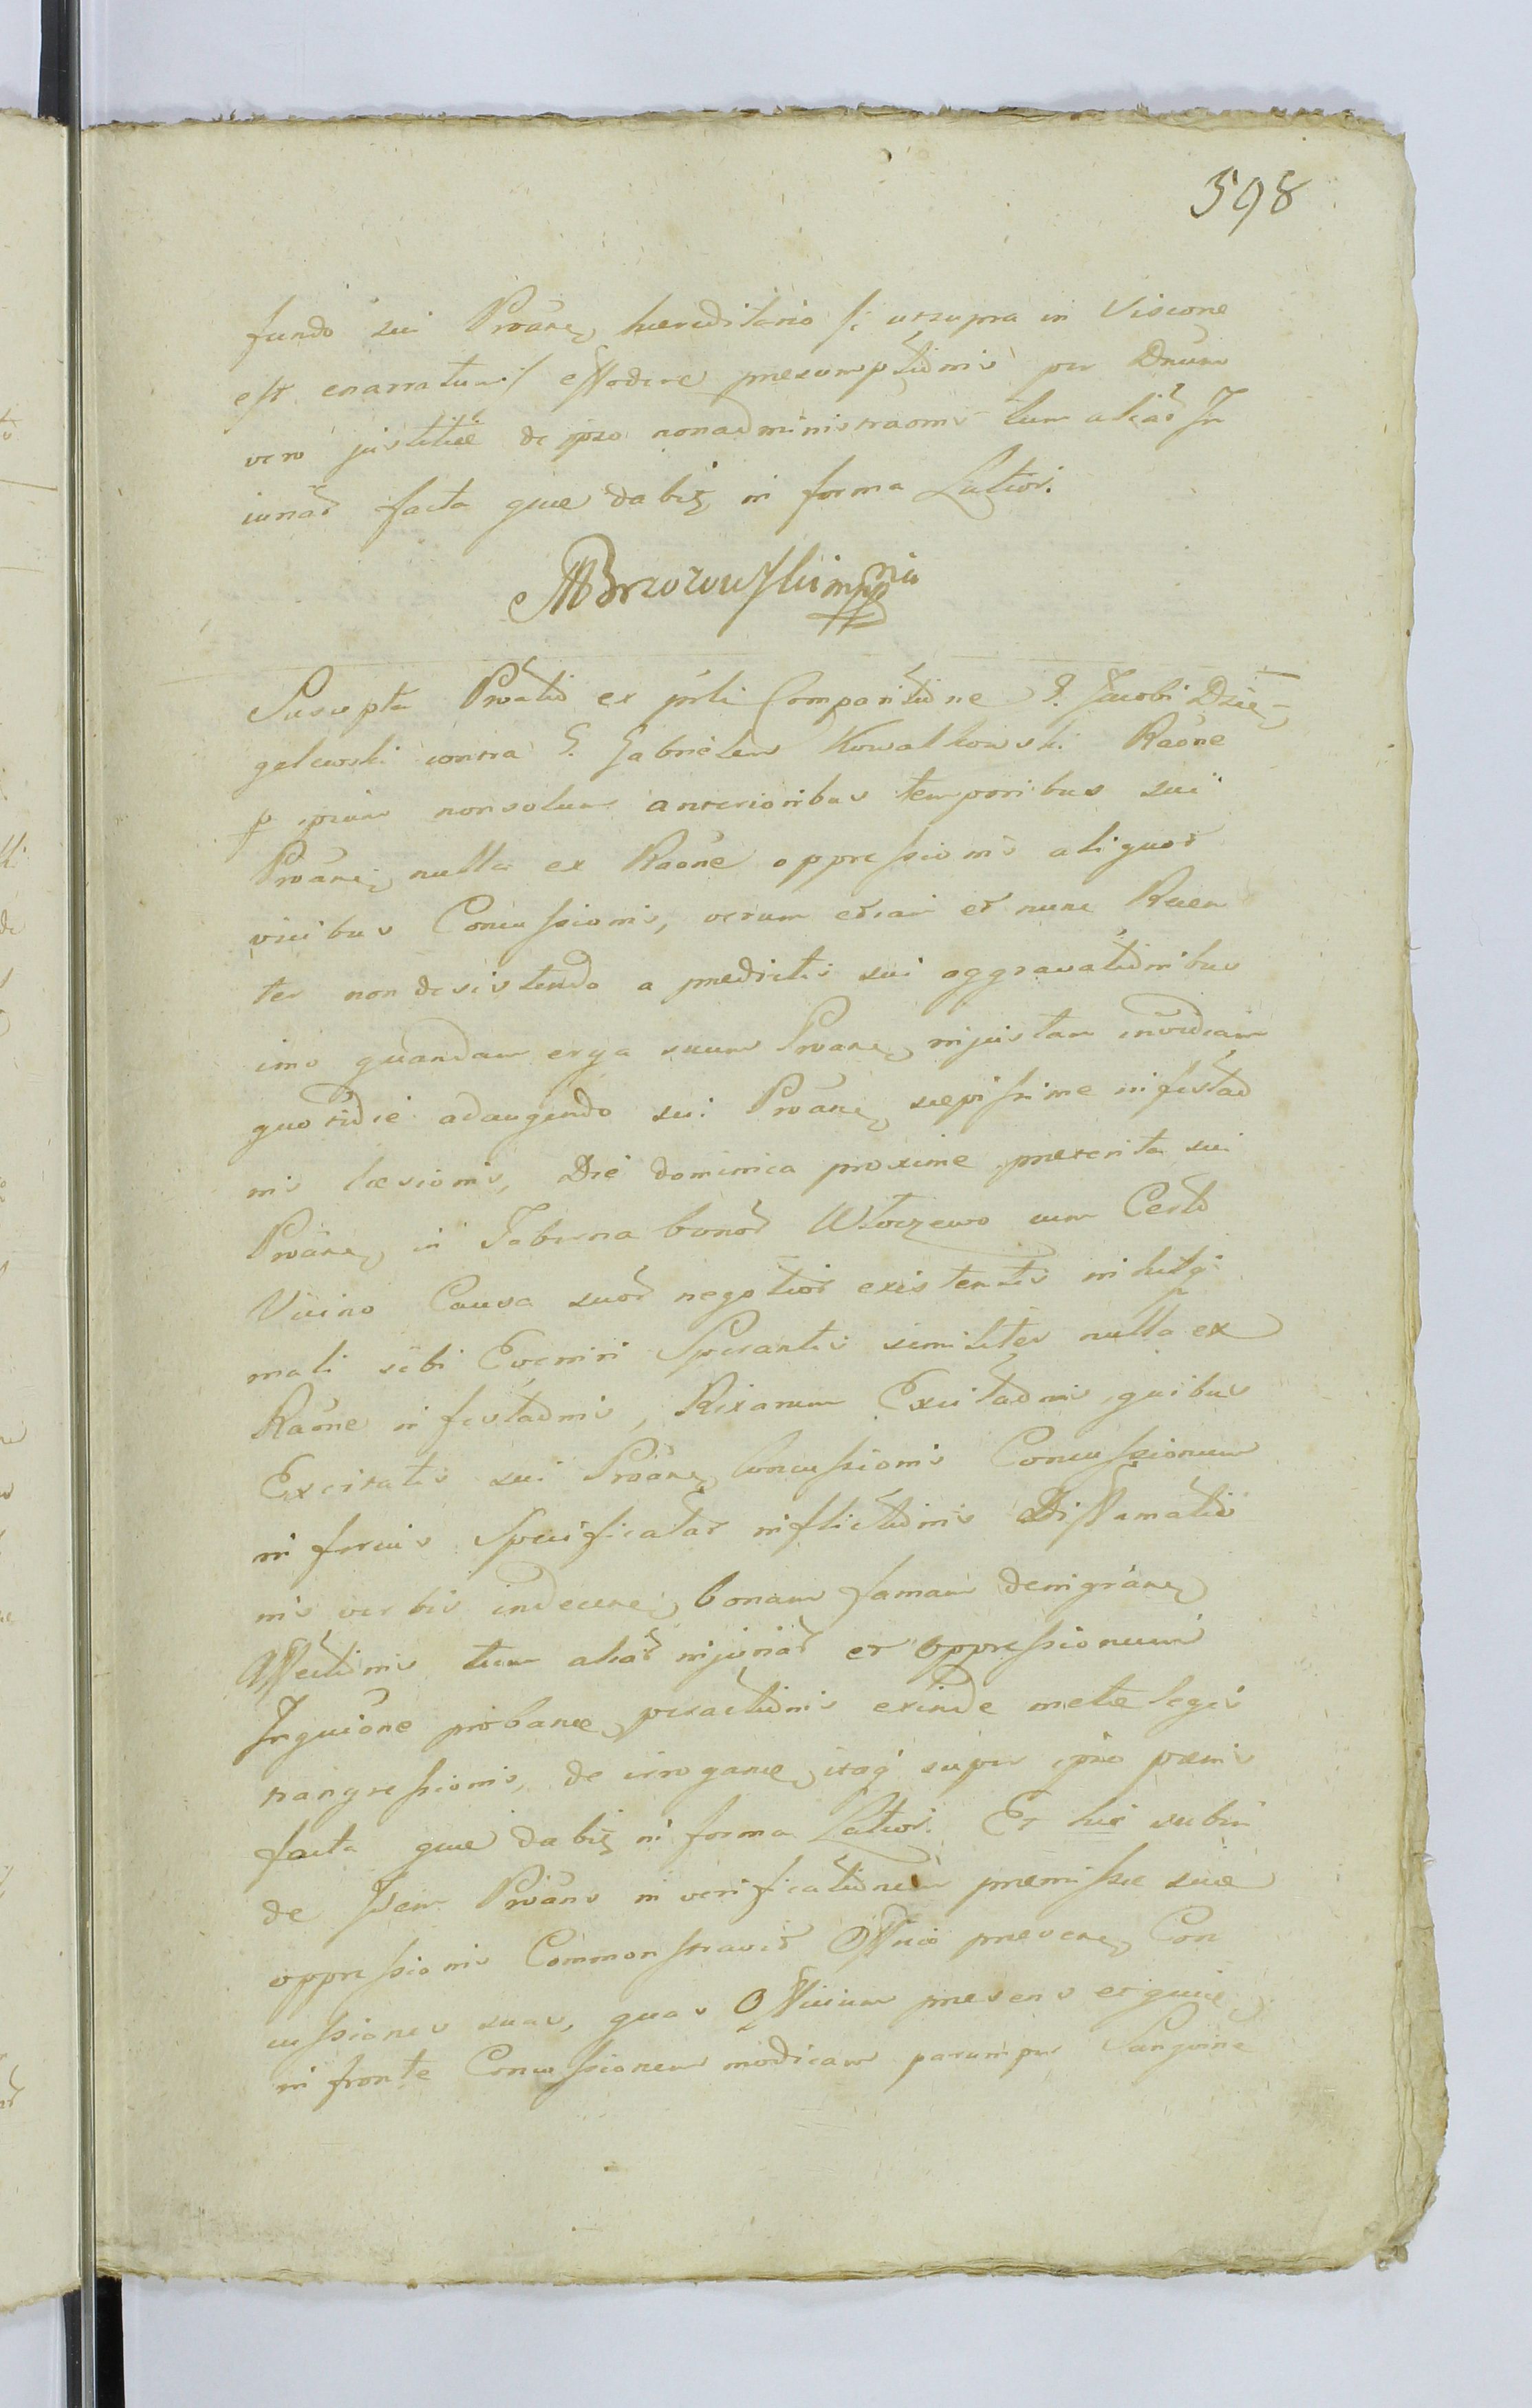 598
fundo sui Proãne hæreditario /: ut supra in Visione
est enarratum :/ effodere præsumptionis per Dnum
vero justitiæ de ipso nonadministraõnis tum aliar In
iuriar facta quæ dabit in forma Latiori.
MBrzozowski mppria
Suscepta Proatio ex prsti Comparitione G. Jacobi Dzię-
gelewski contra G. Gabrielem Kowalkowski Raõne
p ipsum nonsolum anterioribus temporibus sui
Proãne nulla ex Raõne oppressionis aliquot
vicibus Concussionis, verum etiam et nunc Recen
ter non desistendo a prædictis sui aggravationibus
imo quandam erga suum Proane injustam invidiam
quotidie adaugendo sui Proãne sæpissime infestao
nis læsionis, Die dominica proxime præterita sui
Proãne in Taberna bonor Wtorzewo cum Certo
Vicino Causa suor negotior existentis nihilq
mali sibi Eveniri Sperantis similiter nulla ex
Raõne infestaõnis, Rixarum Excitaõnis quibus
Excitatis sui Proãne Concussionis Concussionum
inferius Specificatar inflictionis Diffamatio
nis verbis indecen bonam famam denigrane
Affectionis tum aliar injuriar et oppressionum
Inquisione probane peractionis exinde metæ legis
transgressionis, de irrogane itaq super ipso pænis
facta quæ dabit in forma Latiori. Et hic subin
de Idem Proãns in verificationem præmissæ suæ
oppressionis Commonstravit Officio præsene Con
cussiones suas, quas Officium præsens et quidē
in fronte Concussionem modicam parumper Sanguine